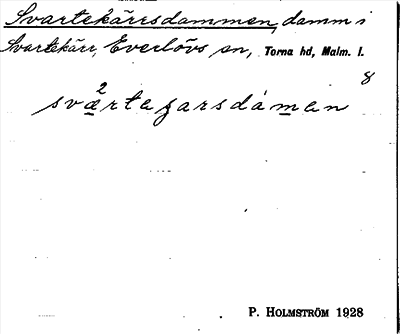 Svartekärrsdammen, damm i
Svartekärr, Everlövs sn, Torna hd, Malm. l.
8
2
sværteʒarsdámen
P. HOLMSTRÖM 1928